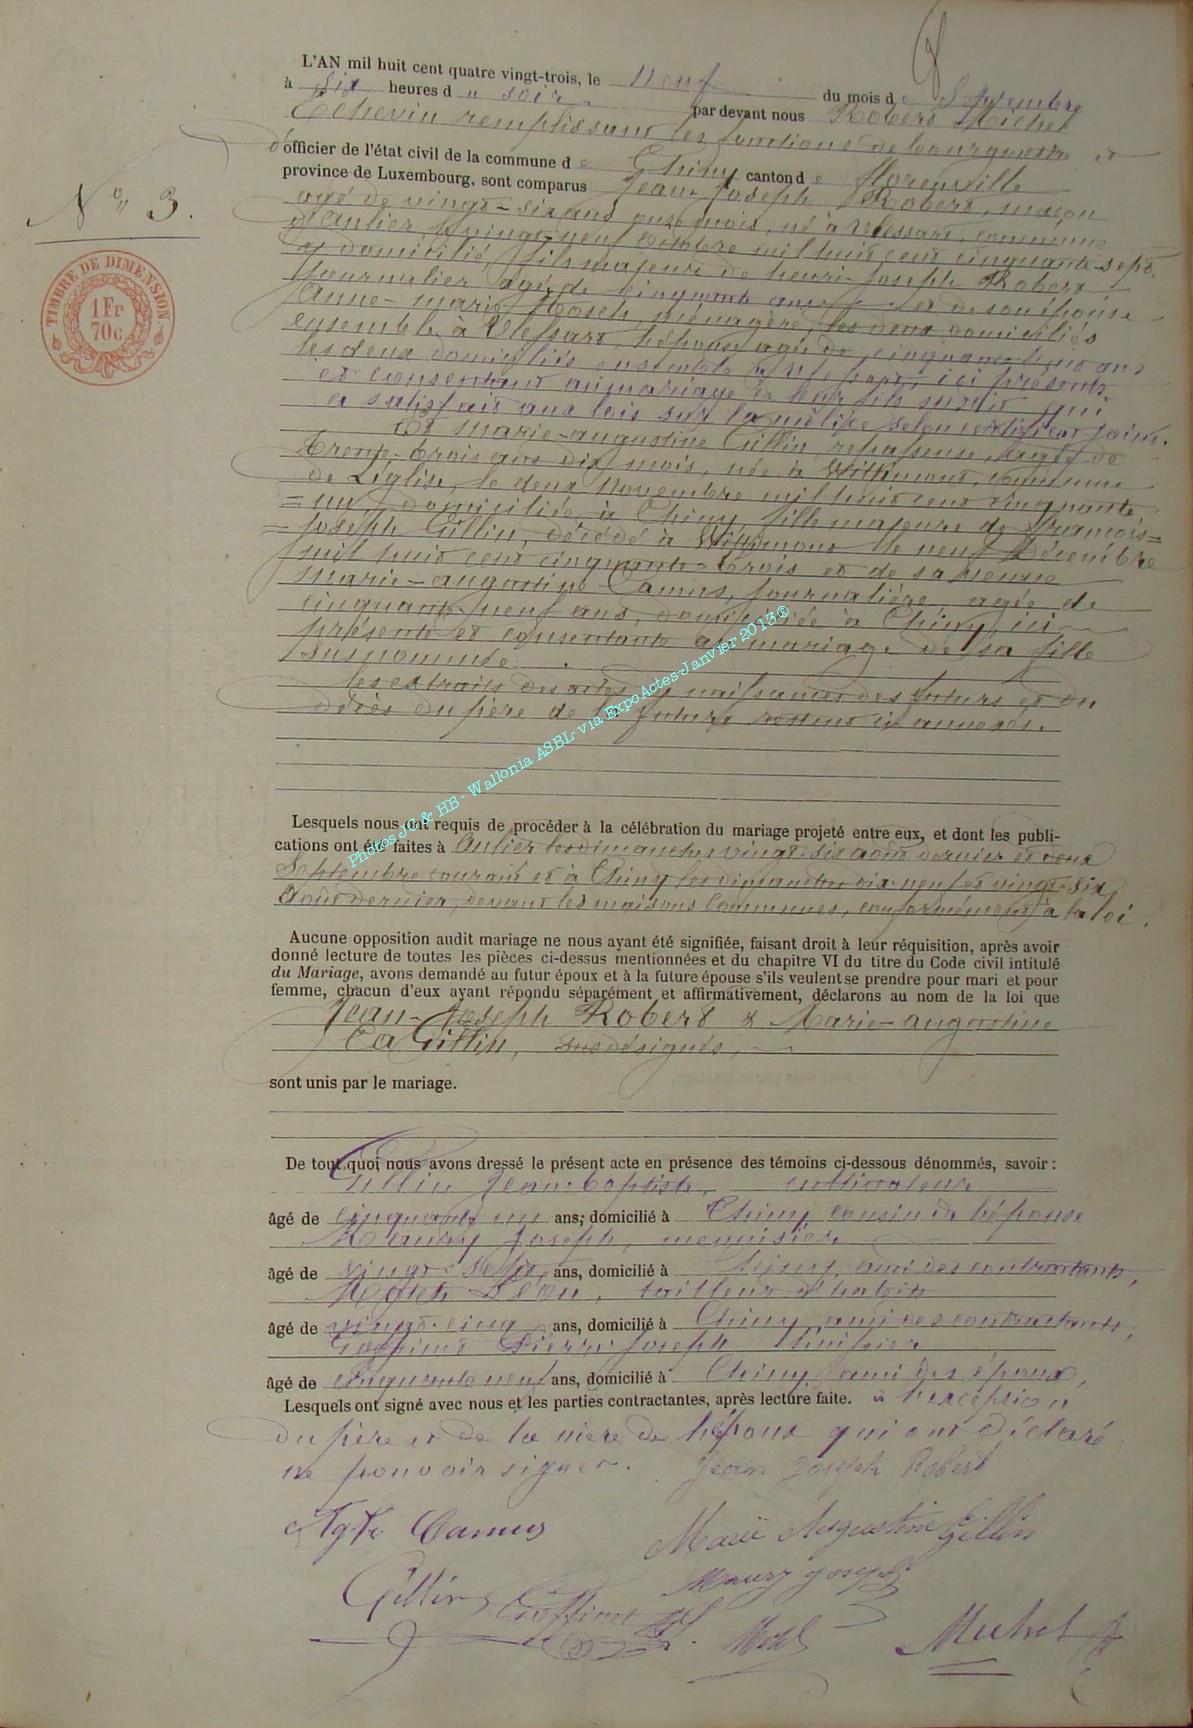 L'AN mil huit cent quatre vingt-trois, le neuf du mois de Septembre
à six heures du soir par devant nous Robert Michel
Echevin remplissant les fonctions de bourgmestre et
d'officier de l'état civil de la commune de Chiny canton de Florenville
province de Luxembourg, sont comparus Jean-Joseph Robert, maçon
agé de vingt-six ans onze mois, né à Vlessart, commune
d'Anlier, le vingt-neuf Octobre mil huit cent cinquante-sept
y domicilié, fils majeur de henri-joseph Robert
journalier agé de cinquante ans et de son épouse
Anne-Marie ménagère, les deux domiciliés
ensemble à Vlessart, l'épouse agée de cinquante ans
les deux domiciliés ensemble à Vlessart, ici présents
et consentant au mariage de leur fils susdit qui
a satisfait aux lois sur la milice selon certificat joint.
Et Marie-augustine Gillin, repasseuse, agée de
trente-trois ans dix mois, née à Wittimont, commune
de Léglise, le deux Novembre mil huit cent cinquante
= un, domiciliée à Chiny, fille majeure de françois=
= joseph Gillin, décédé à Wittimont le neuf Décembre
mil huit cent cinquante-trois et de sa veuve
Marie-augustine Camus, journalière agée de
cinquante-neuf ans, domiciliée à Chiny, ici
présente et consentante au mariage de sa fille
susnommée.
les extraits des actes de naissances des futurs et du
décès du père de la future restent ici annexés.
Lesquels nous ont requis de procéder à la célébration du mariage projeté entre eux, et dont les publi-
cations ont été faites à Anlier les dimanches vingt-six août dernier et deux
Septembre courant et à Chiny les dimanches dix-neuf et vingt-six
Août dernier, devant les maisons Communes, conformément à la loi.
Aucune opposition audit mariage ne nous ayant été signifiée, faisant droit à leur réquisition, après avoir
donné lecture de toutes les pièces ci-dessus mentionnées et du chapitre VI du titre du Code civil intitulé
du Mariage, avons demandé au futur époux et à la future épouse s'ils veulent se prendre pour mari et pour
femme, chacun d'eux ayant répondu séparément et affirmativement, déclarons au nom de la loi que
Jean-Joseph Robert & Marie-augustine
Gillin, susdésignés,
sont unis par le mariage.
De tout quoi nous avons dressé le présent acte en présence des témoins ci-dessous dénommés, savoir :
Gillin Jean-baptiste, cultivateur
âgé de cinquante un ans, domicilié à Chiny, cousin de l'épouse
Maury Joseph, menuisier
âgé de vingt-sept ans, domicilié à Chiny, ami des contractants,
Léon, tailleur d'habits
âgé de vingt-cinq ans, domicilié à Chiny, ami des contractants,
Goffinet Pierre joseph
âgé de cinquante neuf ans, domicilié à Chiny, ami des époux,
Lesquels ont signé avec nous et les parties contractantes, après lecture faite. à l'exception
du père et de la mère de l'époux qui ont déclaré
ne pouvoir signer. Jean Joseph Robert
Camus Marie Augustine Gillin
Maury Joseph
Gillin Goffinet Michel
N° 3.
TIMBRE DE DIMENSION
1 Fr
70c
Photos JC & HB - Wallonia ASBL- via ExpoActes-Janvier 2013®